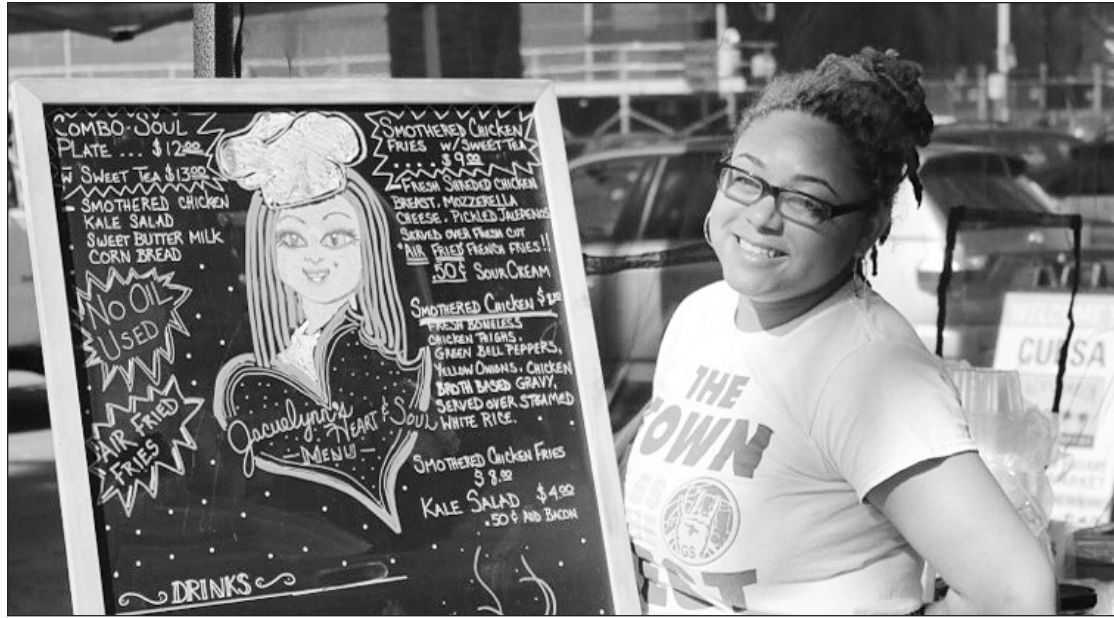 COMBO-SOUL
PLATE ... $12.00
W SWEET TEA $13.00
SMOTHERED CHICKEN
KALE SALAD
SWEET BUTTER MILK
CORN BREAD
NO OIL
USED
AIR FRIED
FRIES
Jacuelynn's
HEART & SOUL
- MENU -
SMOTHERED CHICKEN
FRIES W/ SWEET TEA
.... $9.00
FRESH SHREDED CHICKEN
BREAST. MOZZERELLA
CHEESE. PICKLED JALEPENOS
SERVED OVER FRESH CUT
*AIR FRIED FRENCH FRIES!!
.50¢ SOUR CREAM
SMOTHERED CHICKEN $8.00
FRESH BONELESS
CHICKEN THIGHS.
GREEN BELL PEPPERS,
YELLOW ONIONS. CHICKEN
BROTH BASED GRAVY,
SERVED OVER STEAMED
WHITE RICE.
SMOTHERED CHICKEN FRIES
$8.00
KALE SALAD $4.00
.50¢ ADD BACON
DRINKS
THE
TOWN
GS
CUESA